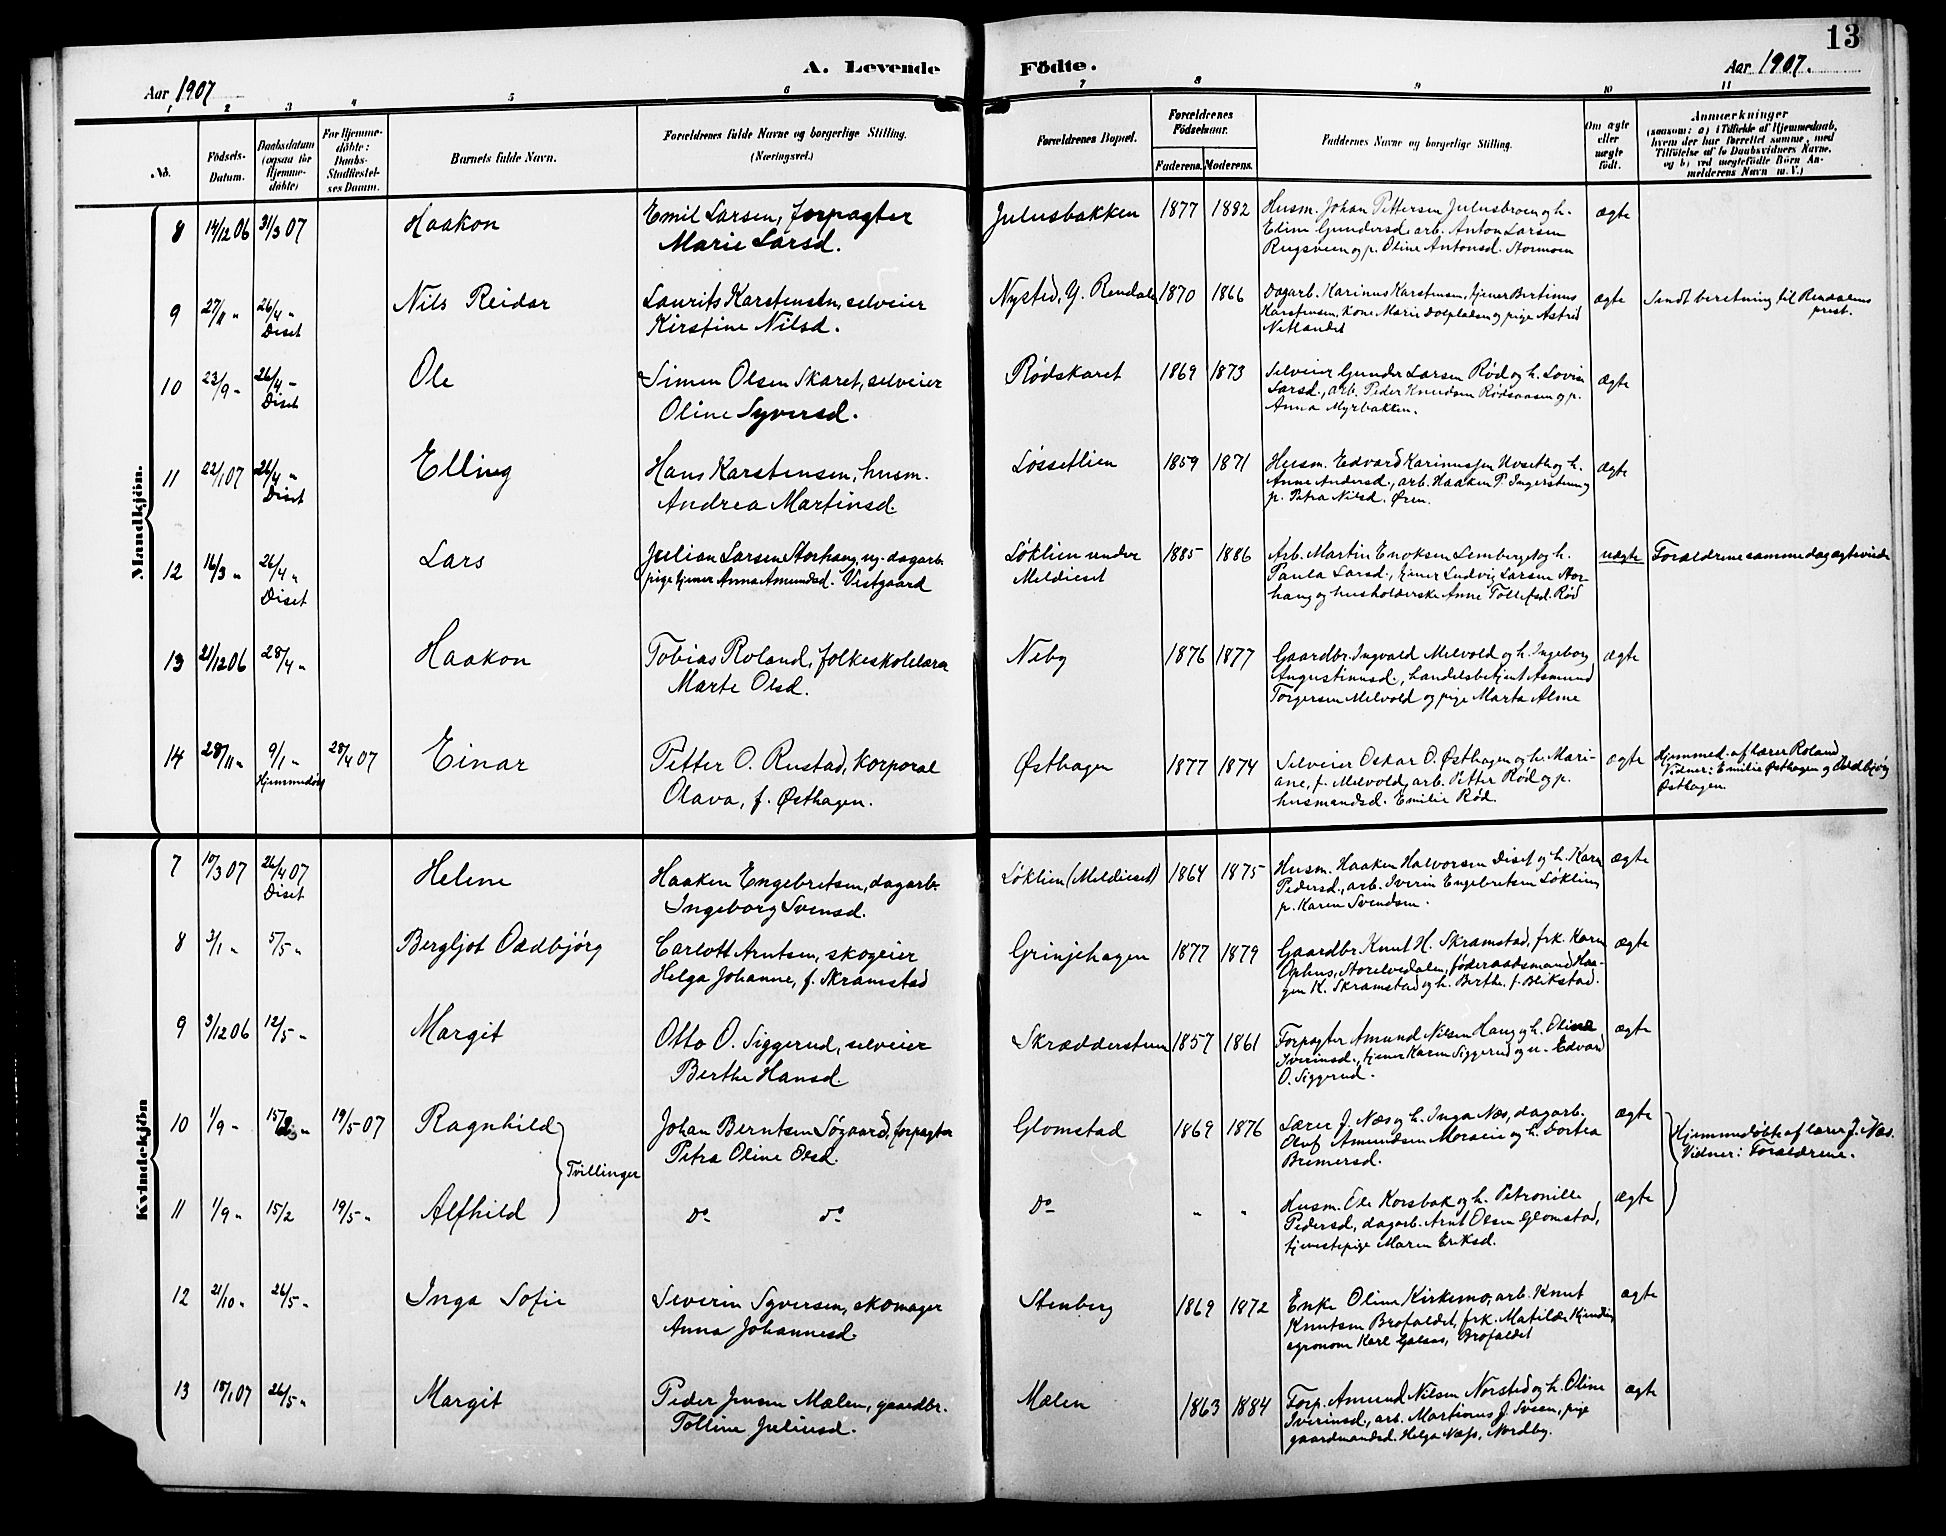 13
A. Levende Födte.
Aar 1907
Aar 1907.
1 2 3 4 5 6 7 8 9 10 11
No.
Födsels-Datum.
Daabsdatum (ogsaa for Hjemme-döbte)
For Hjemme-döbte: Daabs-Stadfæstel-ses Datum.
Barnets fulde Navn.
Forældrenes fulde Navne og borgerlige Stilling. (Næringsvei.)
Forældrenes Bopæl.
Forældrenes Födselsaar.
Faderens. Moderens.
Faddernes Navne og borgerlige Stilling.
Om ægte eller uægte födt.
Anmærkninger
(saasom: a) i Tilfælde af Hjemmedaab, hvem der har forrettet samme, med Tilföielse af to Daabsvidners Navne, og b) ved uægtefödte Börn An-melderens Navn m. V.)
Mandkjön.
8 14/12 06 31/3 07 Haakon Emil Larsen, forpagter Julusbakken 1877 1882 Husm. Johan Pettersen Julusbroen og h. ægte
Marie Larsd. Eline Gundersd. arb. Anton Larsen
Rugsveen og p. Oline Antonsd. Stormoen
9 27/11 " 26/4 " Nils Reidar Laurits Karstensen, selveier Nysted, Y. Rendalen 1870 1866 Dagarb. Karinus Karstensen, tjener Bertinus ægte Sendt beretning til Rendalens
Diset Kirstine Nilsd. Karstensen, kone Marie Dolpladsen og pige Astrid prest.
Netlandet
10 23/9 - 26/4 - Ole Simen Olsen Skaret, selveier Rødskaret 1869 1873 Selveier Gunder Larsen Rød og h. Lovise ægte
Diset Oline Syversd. Larsd., arb. Peder Knudsen Rødsaasen og p.
Anna Myrbakken.
11 22/1 07 26/4 " Elling Hans Karstensen, husm. Løssetlien 1859 1871 Husm. Edvard Karinussen Kvseth og h. ægte
Diset Andrea Martinsd. Anne Andersd., arb. Haaken P. Ingerstuen og
p. Petra Nilsd. Øren.
12 16/3 " 26/4 " Lars Julian Larsen Storhaug, ug. dagarb. Løklien under 1885 1886 Arb. Martin Enoksen Lemberget og h. uægte Forældrene samme dag ægteviede
Diset pige tjener Anna Amundsd. Vestgaard Meldieset Paula Larsd., tjener Ludvig Larsen Stor-
haug og husholderske Anne Tollefsd. Rød
13 21/12 06 28/4 " Haakon Tobias Roland, folkeskolelærer Neby 1876 1877 Gaardbr. Ingvald Melvold og h. Ingeborg ægte
Marte Olsd. Augustinusd., handelsbetjent Asmund
Torgersen Melvold og pige Marta Alme
14 28/11 " 9/1 " 28/4 07 Einar Petter O. Rustad, korporal Østhagen 1877 1874 Selveier Oskar O. Østhagen og h. Mari- ægte Hjemmed. af lærer Roland
Hjemmedøbt Olava, f. Østhagen. ane, f. Melvold, arb. Petter Rød og p. Vidner: Emilie Østhagen og Oddbjørg
husmandsd. Emilie Rød. Østhagen.
Kvindekjön
7 10/3 07 26/4 07 Helene Haaken Engebretsen, dagarb. Løklien (Meldieset) 1864 1875 Husm. Haaken Halvorsen Diset og h. Karen ægte
Diset Ingeborg Svensd. Pedersd., arb. Iverin Engebretsen Løklien,
p. Karen Svendsen.
8 3/1 " 5/5 " Bergljot Oddbjørg Carlott Arntsen, skogeier Grinjehagen 1877 1879 Gaardbr. Knut H. Skramstad, frk. Karen ægte
Helga Johanne, f. Skramstad Ophus, Storelvedalen, føderaadsmand Haa-
gen K. Skramstad og h. Berthe. f. Blikstad.
9 3/12 06 12/5 " Margit Otto O. Siggerud, selveier Skrædderstuen 1857 1861 Forpagter Amund Nilsen Haug og h. Oline ægte
Berthe Hansd. Iverinsd., tjener Karen Siggerud og u. Edvard
O. Siggerud.
10 1/9 " 15/2 " 19/5 07 Ragnhild Johan Berntsen Søgaard, forpagter Glomstad 1869 1876 Lærer J. Næs og h. Inga Næs, dagarb. ægte Hjemmedøbt af lærer J. Næs.
Tvillinger Petra Oline Olsd. Olof Amundsen Moraeie og h. Dortea Vidner: Forældrene.
Bremersd.
11 1/9 " 15/2 19/5 " Alfhild Do do Do " " Husm. Ole Korsbak og h. Petronille ægte
Pedersd., dagarb. Arnt Olsen Glomstad,
tjenestepige Maren Eriksd.
12 21/10 " 26/5 " Inga Sofie Severin Syversen, skomager Stenberg 1869 1872 Enke Oline Kirkemo, arb. Knut ægte
Anna Johannesd. Knutsen Brofaldet, frk. Matilde Kjendlie
agronom Karl Galaas, Brofaldet
13 18/1 07 26/5 " Margit Peder Jensen Mælen, gaardbr. Mælen 1863 1884 Forp. Amund Nilsen Norsted og h. Oline ægte
Tolline Juliusd. Iverinsd., arb. Martinus J. Svsen, pige
gaardmandsd. Helga Næss, Nordby.